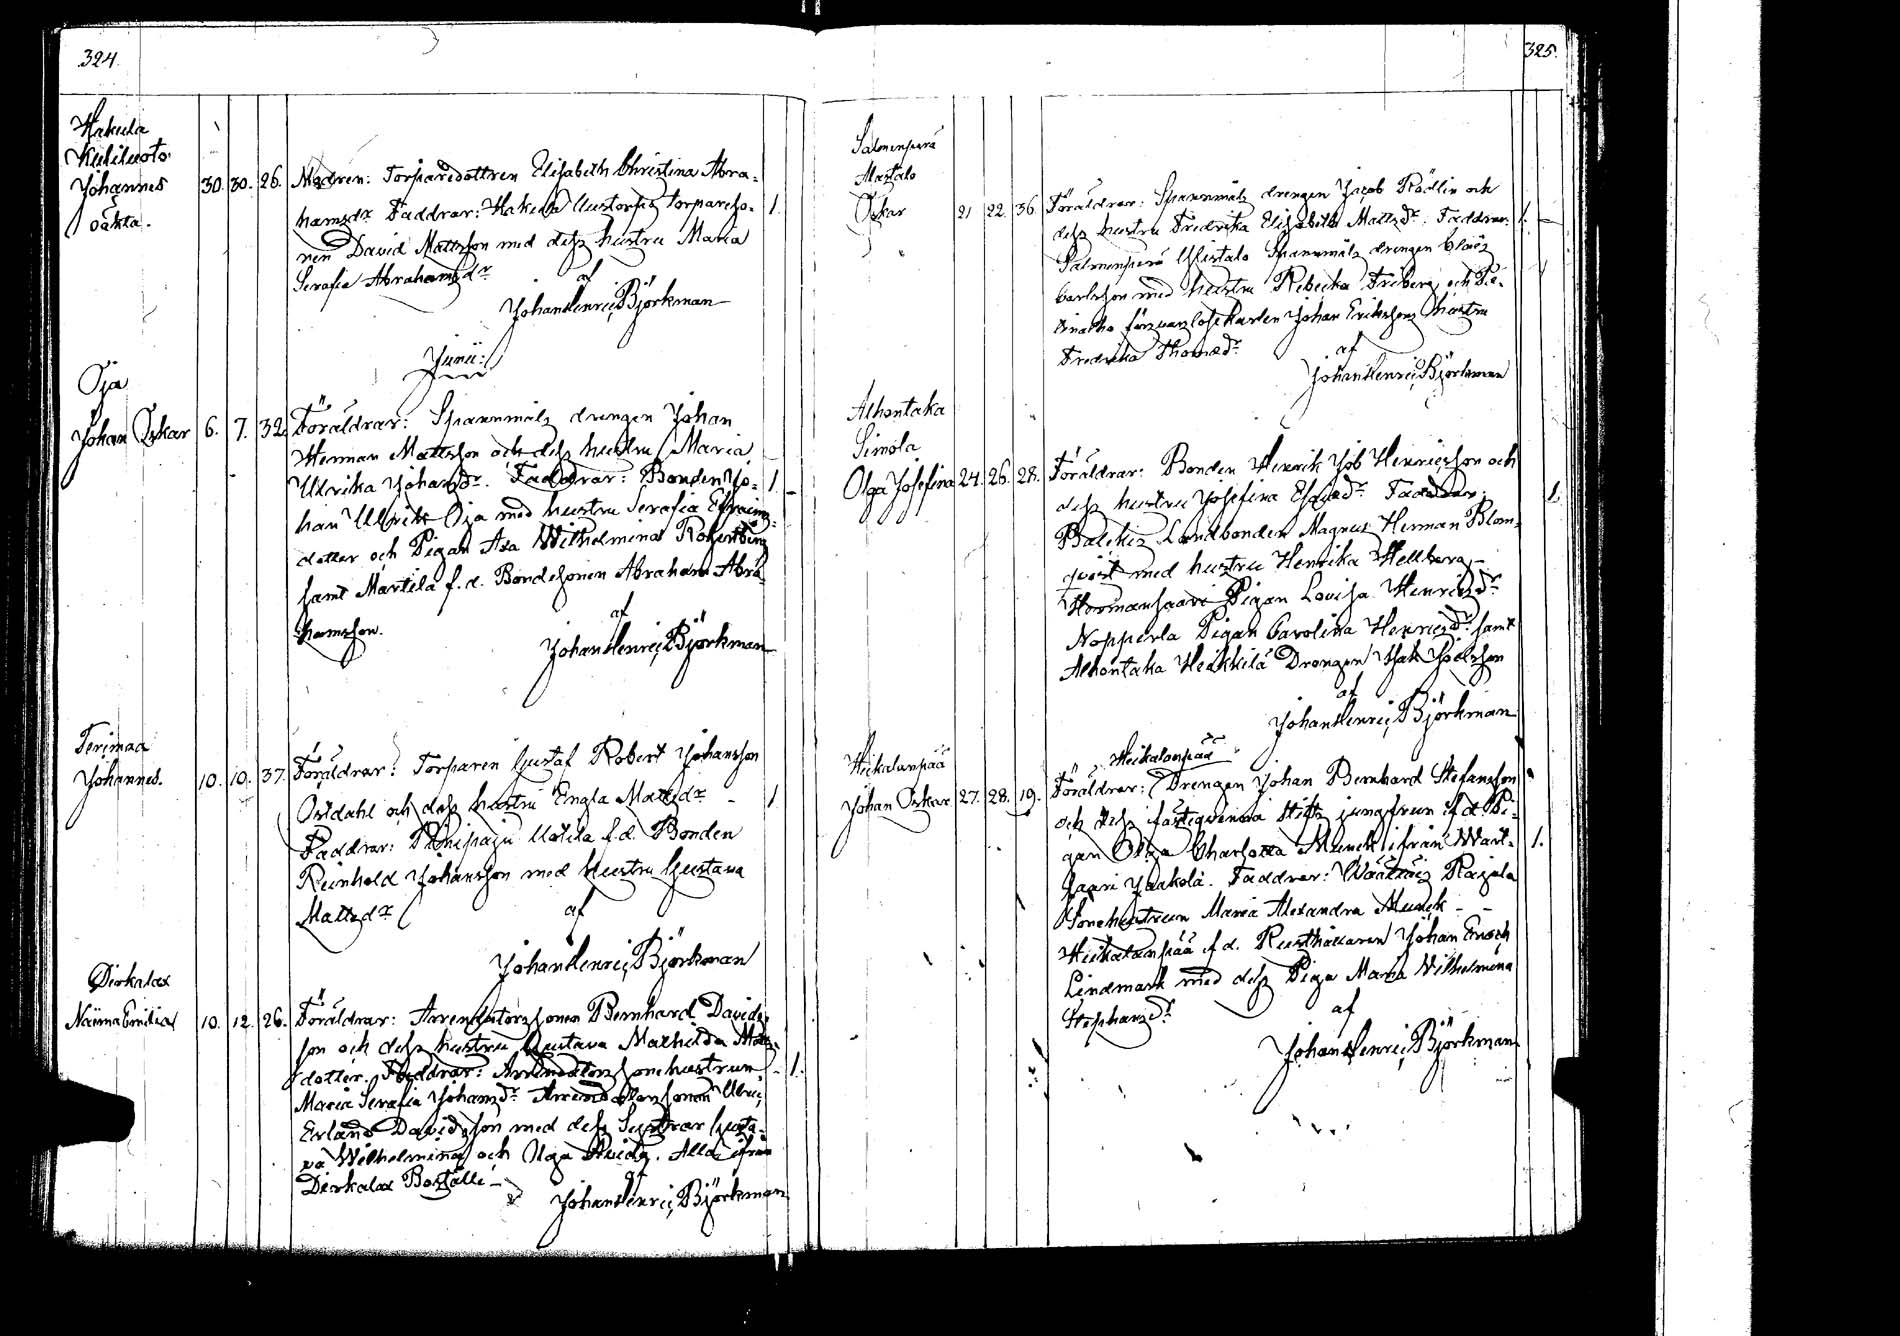 324.
Hakula
Kuliluoto
Johannes 30. 30. 26. Modren: Torparedottren Elisabeth Christina Abra-
oäkta.
hamsdr. Faddrar: Hakula torpareso- 1.
nen David Mattsson med dess hustru Maria
Serafia Abrahamsdr
af
Johan Henric Björkman
Junii:
Oja
Johan Oskar 6. 7. 32. Föräldrar: Spannmåls drengen Johan
Herman Mattsson och dess hustru Maria
Ulrika Johansdr. Faddrar: Bonden Jo- 1
han Ulrik Oja med hustru Serafia Efraims-
dotter och Pigan Ada Wilhelmina
samt Martila f.d. Bondesonen Abraham Abra-
hamsson.
af
Johan Henric Björkman
Terimaa
Johannes. 10. 10. 37. Föräldrar: Torparen Gustaf Robert Johansson
Östdahl och dess hustru Engla Mattsdr 1
Faddrar: Uotila f.d. Bonden
Reinhold Johansson med hustru Gustava
Mattsdr
af
Johan Henric Björkman
Dirkalax
Naima Emilia 10. 12. 26. Föräldrar: Arrendatorssonen Bernhard Davids-
son och dess hustru Gustava Mathilda Matts-
dotter. Faddrar: Arrendators sonehustrun 1.
Maria Serafia Johansdr. Arrendatorssonen Ulric
Erland Davidsson med dess Systrar Gusta-
va Wilhelmina och Olga Davids. Alla ifrån
Dirkalax Boställe
af
Johan Henric Björkman
325.
Salmenperä
Alastalo
Oskar 21 22. 36. Föräldrar: Spannmåls drengen Jacob Rödlin och 1.
dess hustru Fredrika Elisabeth Mattsdr. Faddrar:
Salmenperä Ylistalo Spannmåls drengen Claës
Carlsson med hustru Rebecka Friberg och
Johan Erikssons hustru
Fredrika Thomasdr.
af
Johan Henric Björkman
Alhontaka
Simola
Olga Josefina 24. 26. 28. Föräldrar: Bonden Henrik Job Henricsson och
dess hustru Josefina Esaiedr. Faddrar: 1.
Landbonden Magnus Herman Blom-
qvist med hustru Henrika Hellberg
Hormansaari Pigan Lovisa Henricsdr
Nopperla Pigan Carolina Henricsdr. samt
Alhontaka Heikkilä Drengen Isak Joelsson
af
Johan Henric Björkman
Heikalanpää
Heikalanpää
Johan Oskar 27. 28. 19. Föräldrar: Drengen Johan Bernhard Stefansson
och dess fästeqvinna jungfrun f.d. Pi-
gan Olga Charlotta Munck ifrån Wart- 1.
saari Jaakola. Faddrar: Rajala
Sonehustrun Maria Alexandra Munck
Heikalanpää f.d. Rusthållaren Johan Enoch
Lindmark med dess Piga Maria Wilhelmina
Stephansdr.
af
Johan Henric Björkman